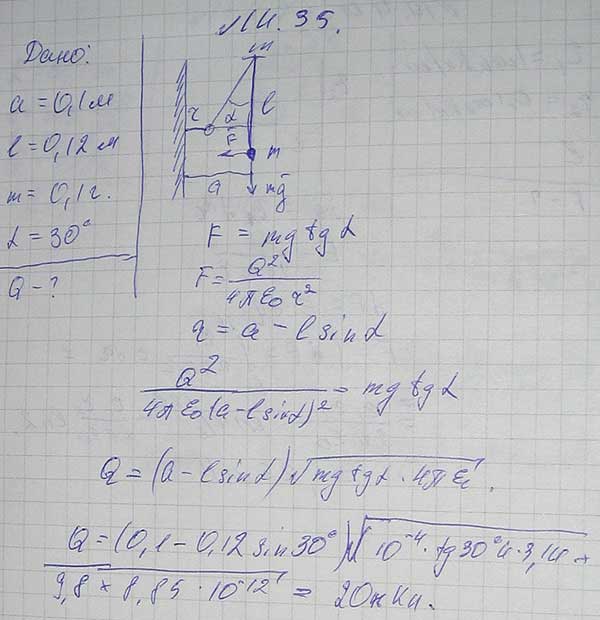 N4. 35.
Дано:
a = 0,1 м
l = 0,12 м
m = 0,1 г.
α = 30°
Q - ?
m
r
α
l
F
m
a
mg
F = mg tg α
F = Q² / 4πε₀ r²
r = a - l sin α
Q² / 4πε₀(a - l sin α)² = mg tg α
Q = (a - l sin α) √mg tg α · 4πε₀.
Q = (0,1 - 0,12 sin 30°) √10⁻⁴ · tg 30° 4 · 3,14 ×
9,8 × 8,85 · 10⁻¹² = 20 нКл.